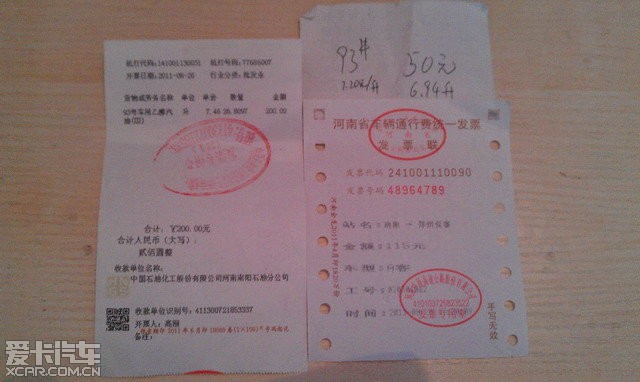 机打代码:141001130051 机打号码:77665007
开票日期:2011-06-26 行业分类:批发业
货物或劳务名称 单位 单价 数量 金额
93号车用乙醇汽 升 7.46 26.8097 200.00
油(III)
合计: ¥200.00元
合计人民币(大写):
贰佰圆整
收款单位名称:
中国石油化工股份有限公司河南南阳石油分公司
收款单位识别号:411300721853337
开票人:高丽
备注:
93# 50元
7.20元/升 6.94升
河南省车辆通行费统一发票
发票联
发票代码 241001110090
发票号码 48964789
站名: 郑州
金额:115元
车型:
工号:
410103725823522
发票专用章
时间:
手写无效
爱卡汽车
XCAR.COM.CN